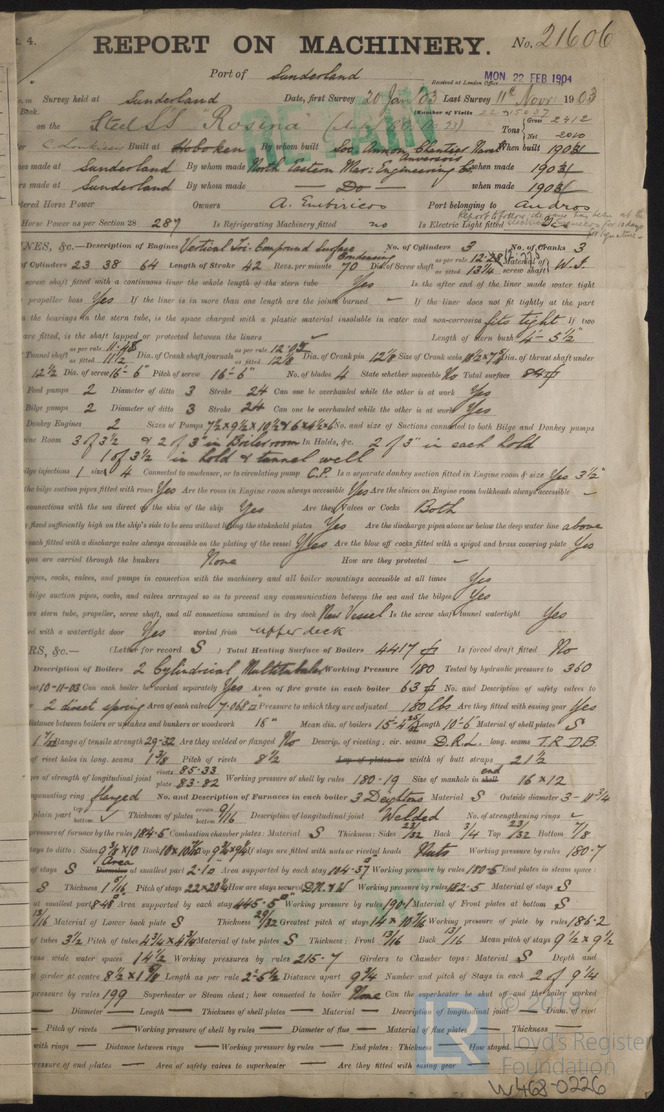 t. 4.
REPORT ON MACHINERY. No. 21606
Port of Sunderland
Received at London Office MON 22 FEB 1904
Survey held at Sunderland Date, first Survey 20 Jan 03 Last Survey 11th Nov 1903
Book. (Number of Visits
on the Steel SS "Rosina" Tons Gross 2412 Net 2010
Built at Hoboken By whom built Soc Anon When built 1903
made at Sunderland By whom made North Eastern Mar: Engineering Co when made 1903
made at Sunderland By whom made — Do — when made 1903
Horse Power Owners A. Embiricos Port belonging to Andros
Horse Power as per Section 28 287 Is Refrigerating Machinery fitted no Is Electric Light fitted
NES, &c.—Description of Engines Vertical Tri-Compound Surface Condensing No. of Cylinders 3 No. of Cranks 3
of Cylinders 23 38 64 Length of Stroke 42 Revs. per minute 70 Dia. of Screw shaft as per rule 12.28 as fitted 13¼ Material of screw shaft W.I.
screw shaft fitted with a continuous liner the whole length of the stern tube Yes Is the after end of the liner made water tight
propeller boss Yes If the liner is in more than one length are the joints burned – If the liner does not fit tightly at the part
the bearings in the stern tube, is the space charged with a plastic material insoluble in water and non-corrosive fits tight If two
are fitted, is the shaft lapped or protected between the liners – Length of stern bush 4'-5½"
Tunnel shaft as per rule 11.48 as fitted 11½ Dia. of Crank shaft journals as per rule 12.05 as fitted 12⅛ Dia. of Crank pin 12⅛ Size of Crank webs Dia. of thrust shaft under
12½ Dia. of screw 16'-6" Pitch of screw 16'-6" No. of blades 4 State whether moveable No Total surface 84
Feed pumps 2 Diameter of ditto 3 Stroke 24 Can one be overhauled while the other is at work Yes
Bilge pumps 2 Diameter of ditto 3 Stroke 24 Can one be overhauled while the other is at work Yes
Donkey Engines 2 Sizes of Pumps 7½ x 9½ x 10½ & 6 x 4½ x 6 No. and size of Suctions connected to both Bilge and Donkey pumps
ine Room 3 of 3½ & 2 of 3" in Boiler room In Holds, &c. 2 of 3" in each hold
1 of 3½ in hold & tunnel well
bilge injections 1 sizes 4 Connected to condenser, or to circulating pump C.P. Is a separate donkey suction fitted in Engine room & size Yes 3½"
the bilge suction pipes fitted with roses Yes Are the roses in Engine room always accessible Yes Are the sluices on Engine room bulkheads always accessible –
connections with the sea direct on the skin of the ship Yes Are they Valves or Cocks Both
fixed sufficiently high on the ship's side to be seen without lifting the stokehold plates Yes Are the discharge pipes above or below the deep water line above
each fitted with a discharge valve always accessible on the plating of the vessel Yes Are the blow off cocks fitted with a spigot and brass covering plate Yes
pes are carried through the bunkers None How are they protected –
pipes, cocks, valves, and pumps in connection with the machinery and all boiler mountings accessible at all times Yes
bilge suction pipes, cocks, and valves arranged so as to prevent any communication between the sea and the bilges Yes
stern tube, propeller, screw shaft, and all connections examined in dry dock New Vessel Is the screw shaft tunnel watertight Yes
ed with a watertight door Yes worked from upper deck
RS, &c.— (Letter for record S) Total Heating Surface of Boilers 4417 Is forced draft fitted No
Description of Boilers 2 Cylindrical Multitubular Working Pressure 180 Tested by hydraulic pressure to 360
10-11-03 Can each boiler be worked separately Yes Area of fire grate in each boiler 63 No. and Description of safety valves to
2 direct spring Area of each valve 7.068 Pressure to which they are adjusted 180 lbs Are they fitted with easing gear Yes
distance between boilers or uptakes and bunkers or woodwork 16" Mean dia. of boilers Length 10'-6" Material of shell plates S
Range of tensile strength 29-32 Are they welded or flanged No Descrip. of riveting: cir. seams D.R.L. long. seams T.R.D.B.
of rivet holes in long. seams 1⅜ Pitch of rivets 8½ Lap of plates or width of butt straps 21½
ges of strength of longitudinal joint rivets 85.33 plate 83.82 Working pressure of shell by rules 180.19 Size of manhole in end 16 x 12
mpensating ring flanged No. and Description of Furnaces in each boiler 3 Deightons Material S Outside diameter 3-11¾
plain part top bottom Thickness of plates crown bottom 9/16 Description of longitudinal joint Welded No. of strengthening rings –
pressure of furnace by the rules 184.5 Combustion chamber plates: Material S Thickness: Sides 23/32 Back ¾ Top 23/32 Bottom ⅞
stays to ditto: Sides 9⅞ x 10 Back Top If stays are fitted with nuts or riveted heads Nuts Working pressure by rules 180.7
of stays S Area at smallest part 2.10 Area supported by each stay 104.37 Working pressure by rules 180.5 End plates in steam space:
S Thickness 1 5/16 Pitch of stays 22 x 20¼ How are stays secured D.N. & W Working pressure by rules 182.5 Material of stays S
smallest part 8.48 Area supported by each stay 445.5 Working pressure by rules 190.1 Material of Front plates at bottom S
13/16 Material of Lower back plate S Thickness 29/32 Greatest pitch of stays 14 x 10 Working pressure of plate by rules 186.2
of tubes 3½ Pitch of tubes 4¾ x 4¾ Material of tube plates S Thickness: Front 13/16 Back 13/16 Mean pitch of stays 9½ x 9½
ross wide water spaces 14½ Working pressures by rules 215.7 Girders to Chamber tops: Material S Depth and
of girder at centre 8½ x 1⅝ Length as per rule 2'-5½ Distance apart 9¾ Number and pitch of Stays in each 2 of 9¼
pressure by rules 199 Superheater or Steam chest; how connected to boiler None Can the superheater be shut off and the boiler worked
— Diameter — Length — Thickness of shell plates — Material — Description of longitudinal joint — Diam. of rivet
— Pitch of rivets — Working pressure of shell by rules — Diameter of flue — Material of flue plates — Thickness —
with rings — Distance between rings — Working pressure by rules — End plates: Thickness — How stayed —
pressure of end plates — Area of safety valves to superheater — Are they fitted with easing gear —
© 2019
Lloyd's Register
Foundation
W468-0226